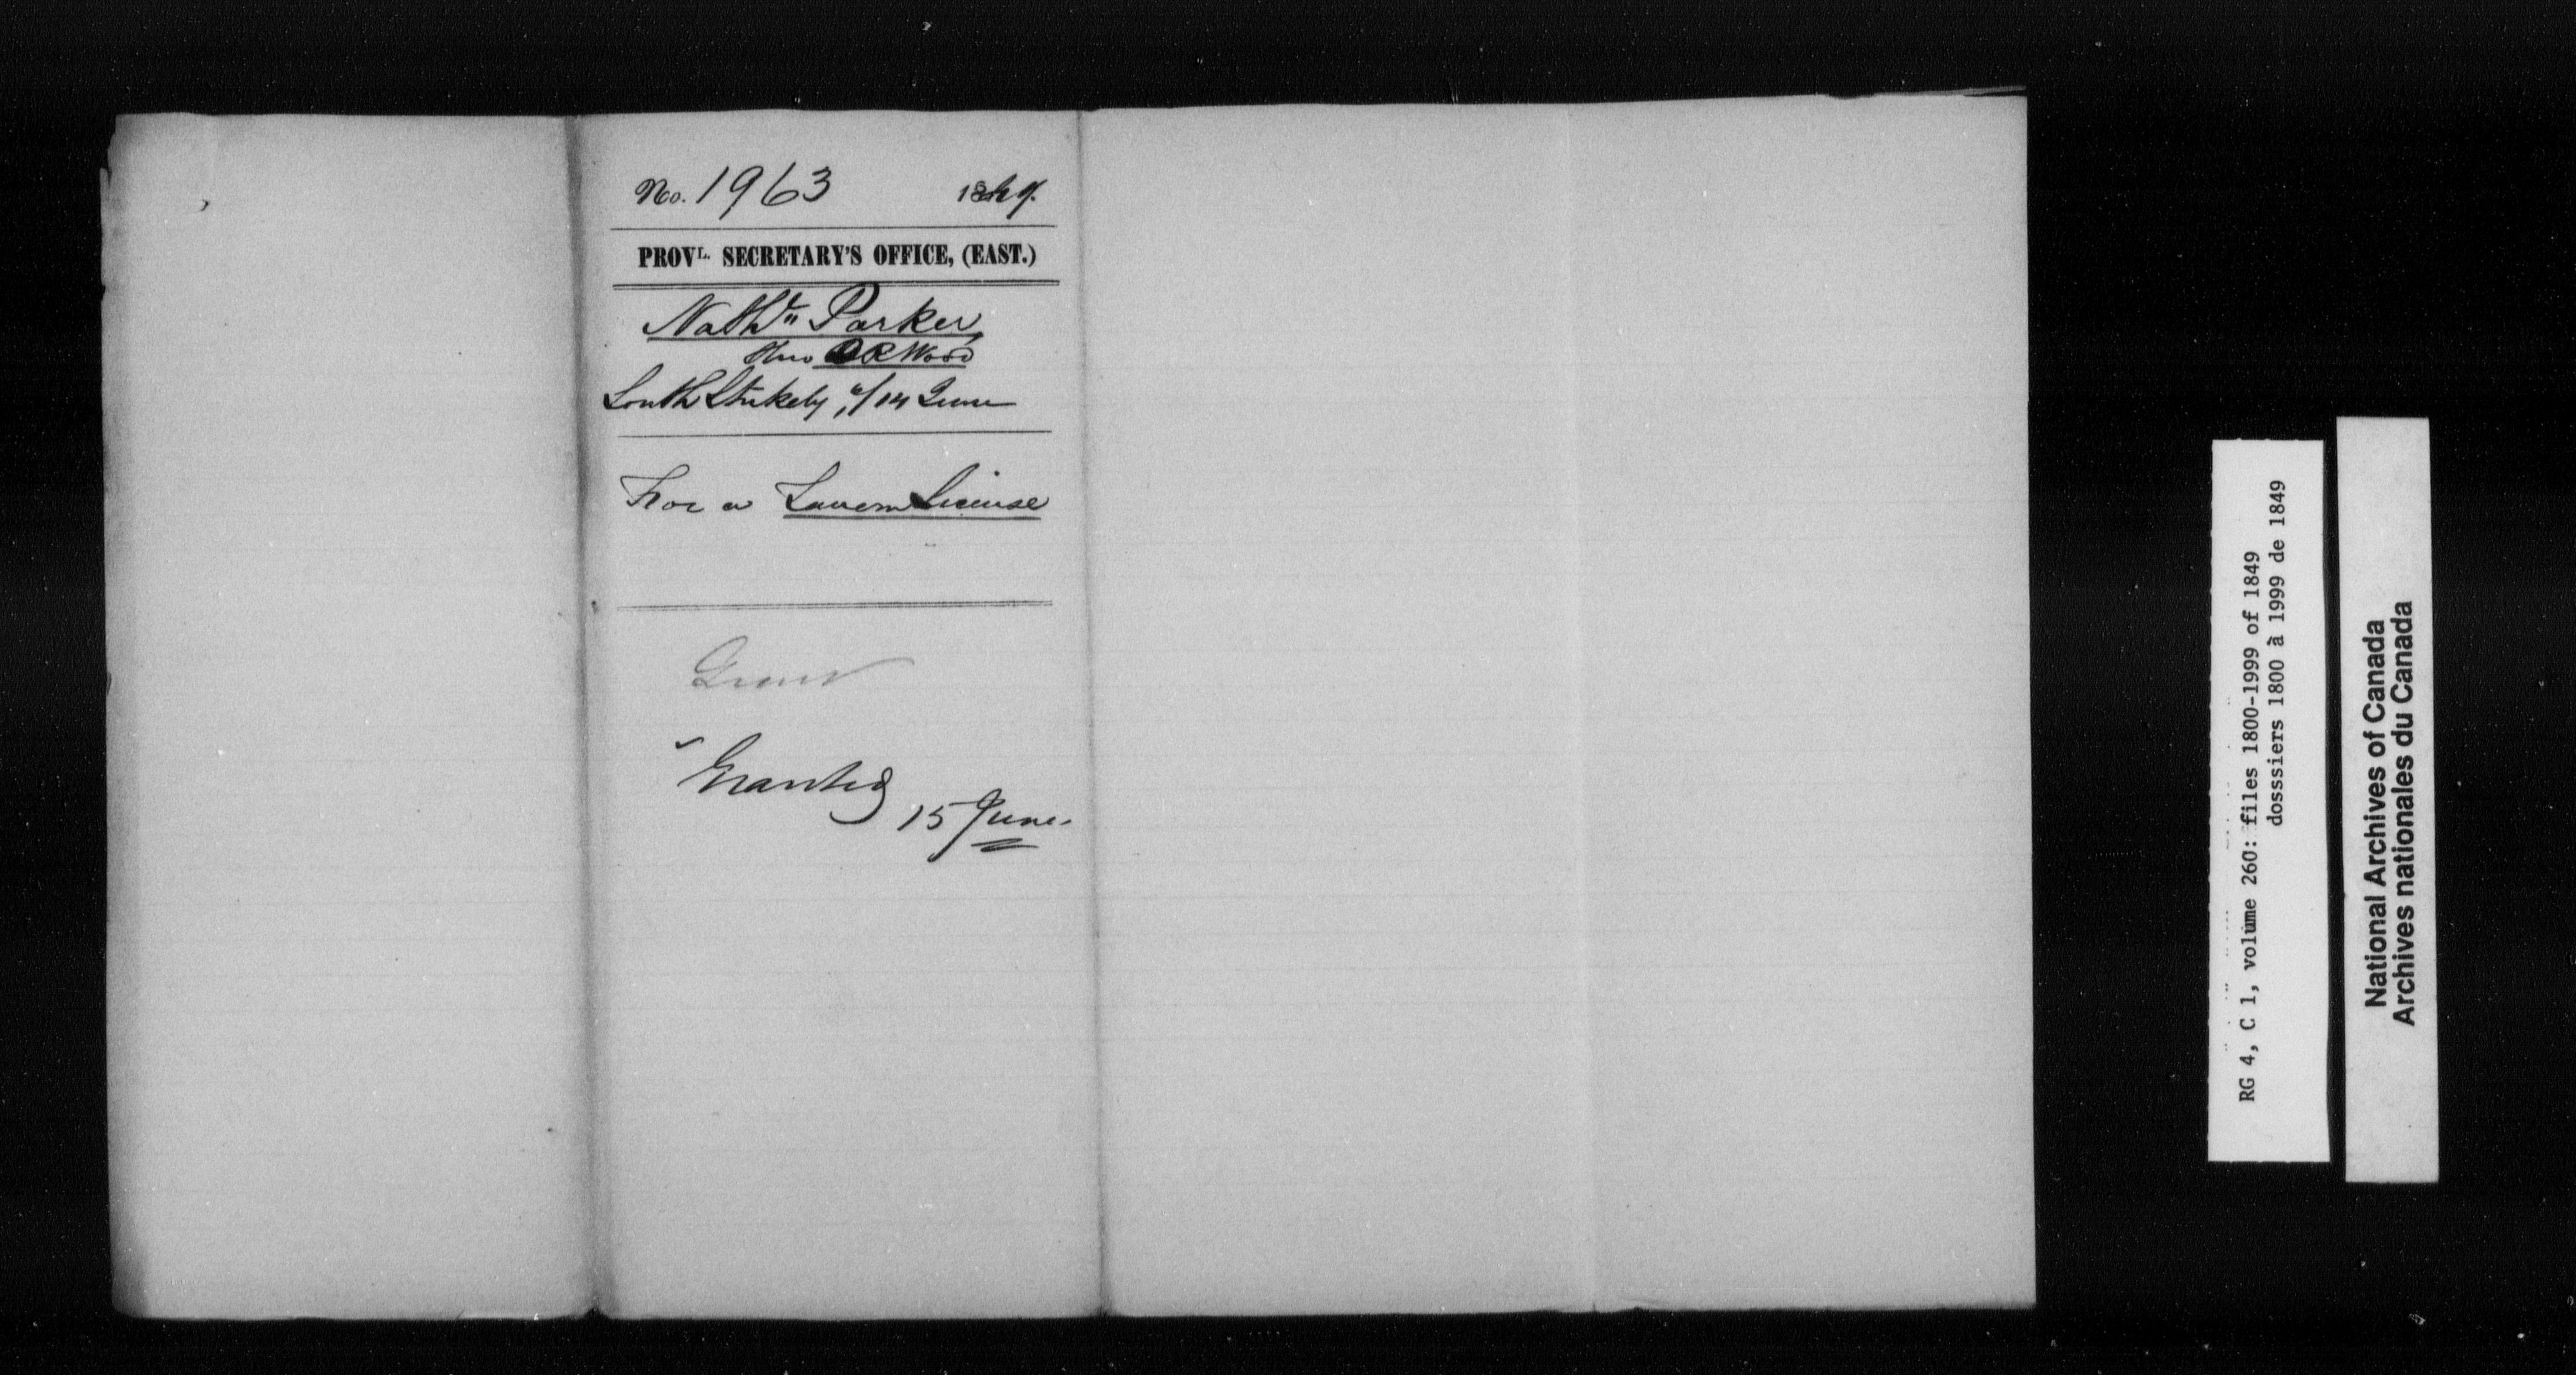 No. 1963 1849.
PROVL. SECRETARY'S OFFICE, (EAST.)
Nathl Parker
thro R Wood
South Stukely, 14 June
For a Tavern License
Grant
Granted
15 June
RG 4, C 1, volume 260: files 1800-1999 of 1849
dosssiers 1800 à 1999 de 1849
National Archives of Canada
Archives nationales du Canada